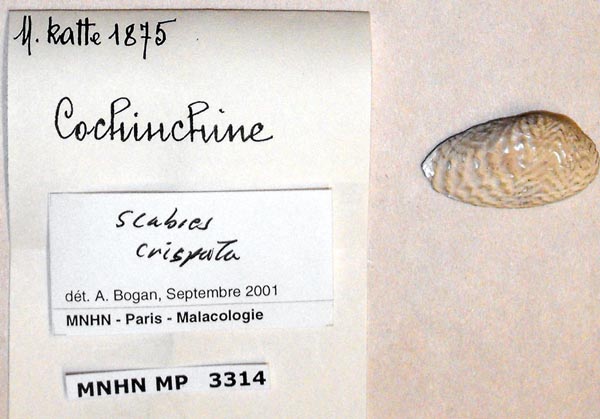 M. Katte 1875
Cochinchine
Scabies
crispata
dét. A. Bogan, Septembre 2001
MNHN - Paris - Malacologie
MNHN MP 3314